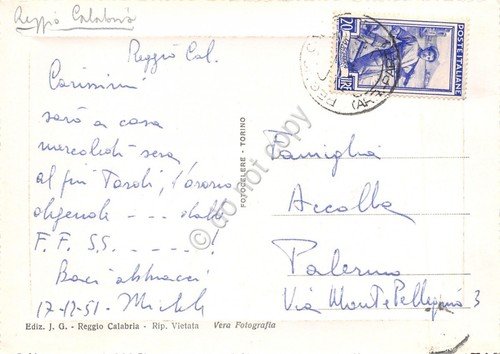 Reggio Calabria
Reggio Cal.
Carissimi
sarò a casa
mercoledì sera
al più tardi, l'orario
dipende --- dalle
F. F. S S. -----!
Baci abbracci
17-12-51. Michele
FOTOCELERE - TORINO
POSTE ITALIANE
20 LIRE
Famiglia
Accolla
Palermo
Via Monte Pellegrino 3
Ediz. J. G. - Reggio Calabria - Rip. Vietata Vera Fotografia
do not copy